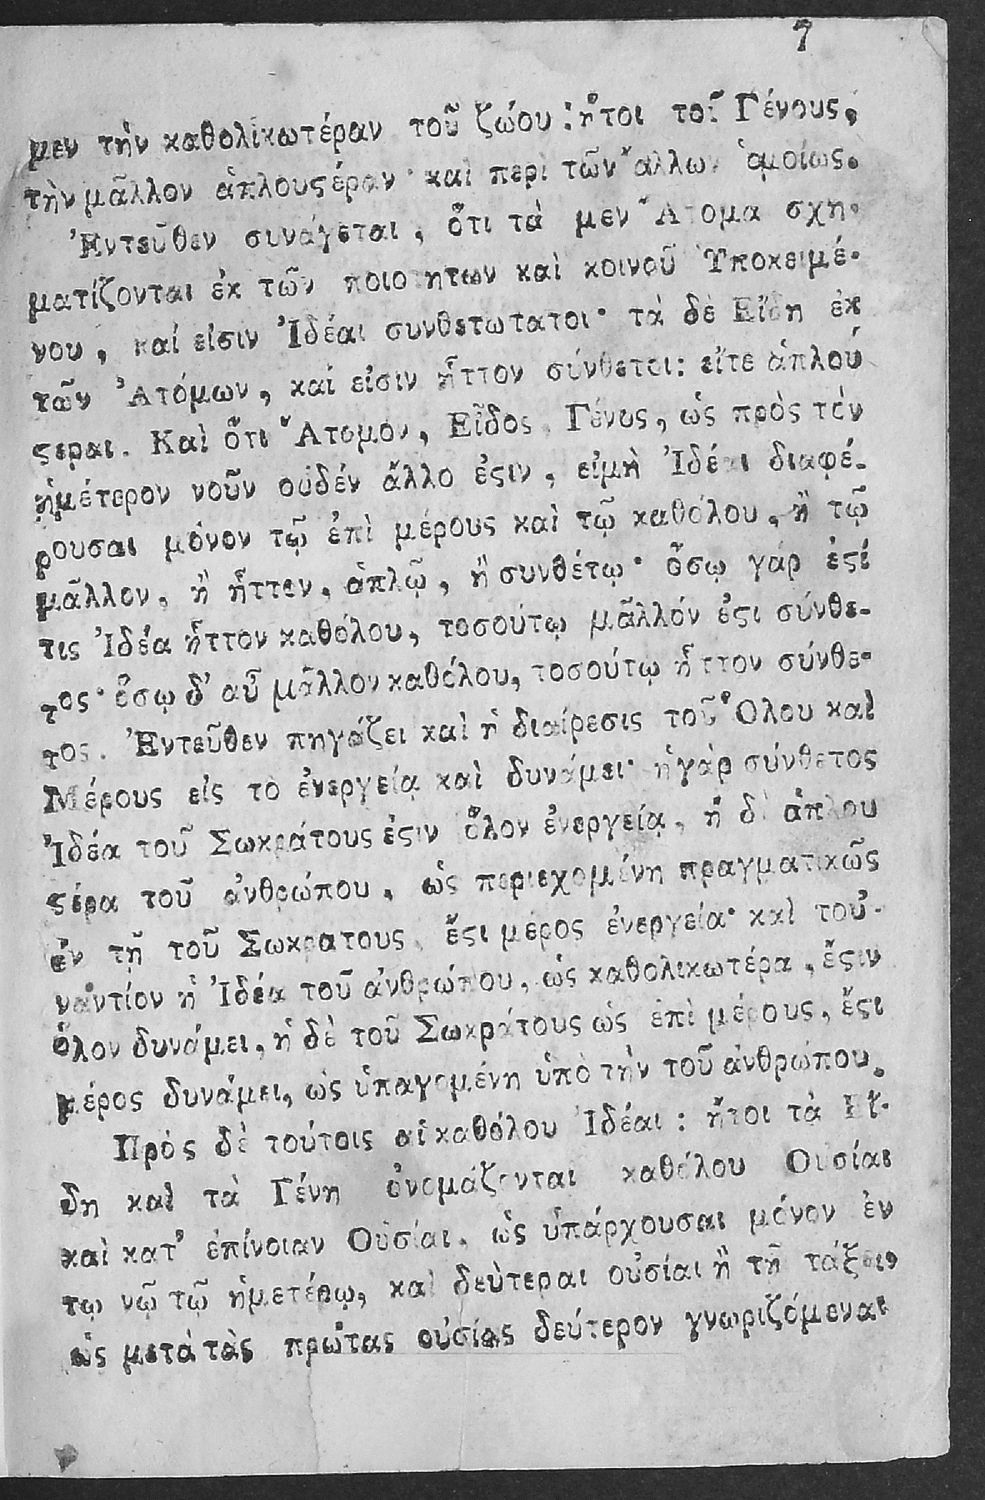 7
μεν τὴν καθολικωτέραν τοῦ ζώου : ἤτοι τοῦ Γένους,
τὴν μᾶλλον ἁπλουϛέραν · καὶ περὶ τῶν ἄλλων ὁμοίως.
Ἐντεῦθεν συνάγεται, ὅτι τὰ μεν Ἄτομα σχη-
ματίζονται ἐκ τῶν ποιοτητων καὶ κοινοῦ Ὑποκειμέ-
νου, καί εἰσιν Ἰδέαι συνθετωτατοι· τὰ δὲ Εἴδη ἐκ
τῶν Ἀτόμων, καί εἰσιν ἧττον σύνθετοι: εἴτε ἁπλού
ϛεραι. Καὶ ὅτι Ἄτομον, Εἶδος, Γένος, ὡς πρὸς τὸν
ἡμέτερον νοῦν οὐδέν ἄλλο ἐϛιν, εἰμὴ Ἰδέαι διαφέ-
ρουσαι μόνον τῷ ἐπὶ μέρους καὶ τῷ καθόλου, ἢ τῷ
μᾶλλον, ἢ ἧττον, ἁπλῷ, ἢ συνθέτῳ· ὅσῳ γάρ ἐϛί
τις Ἰδέα ἧττον καθόλου, τοσούτῳ μᾶλλόν ἐϛι σύνθε-
τος· ὅσῳ δ' αὖ μᾶλλον καθόλου, τοσούτῳ ἧττον σύνθε-
τος. Ἐντεῦθεν πηγάζει καὶ ἡ διαίρεσις τοῦ Ὅλου καὶ
Μέρους εἰς τὸ ἐνεργείᾳ καὶ δυνάμει· ἡ γὰρ σύνθετος
Ἰδέα τοῦ Σωκράτους ἐϛιν ὅλον ἐνεργείᾳ, ἡ δὲ ἁπλου
ϛέρα τοῦ ἀνθρώπου, ὡς περιεχομένη πραγματικῶς
ἐν τῇ τοῦ Σωκρατους, ἔϛι μέρος ἐνεργείᾳ· καὶ τοὐ-
ναντίον ἡ Ἰδέα τοῦ ἀνθρώπου, ὡς καθολικωτέρα, ἔϛιν
ὅλον δυνάμει, ἡ δὲ τοῦ Σωκράτους ὡς ἐπὶ μέρους, ἔϛι
μέρος δυνάμει, ὡς ὑπαγομένη ὑπὸ τὴν τοῦ ἀνθρώπου.
Πρὸς δὲ τούτοις αἱ καθόλου Ἰδέαι : ἤτοι τὰ Εἴ-
δη καὶ τὰ Γένη ὀνομάζονται καθόλου Οὐσίαι
καὶ κατ' ἐπίνοιαν Οὐσίαι, ὡς ὑπάρχουσαι μόνον ἐν
τῳ νῷ τῷ ἡμετέρῳ, καὶ δεύτεραι οὐσίαι ἢ τῇ τάξει,
ὡς μετὰ τὰς πρώτας οὐσίας δεύτερον γνωριζόμεναι